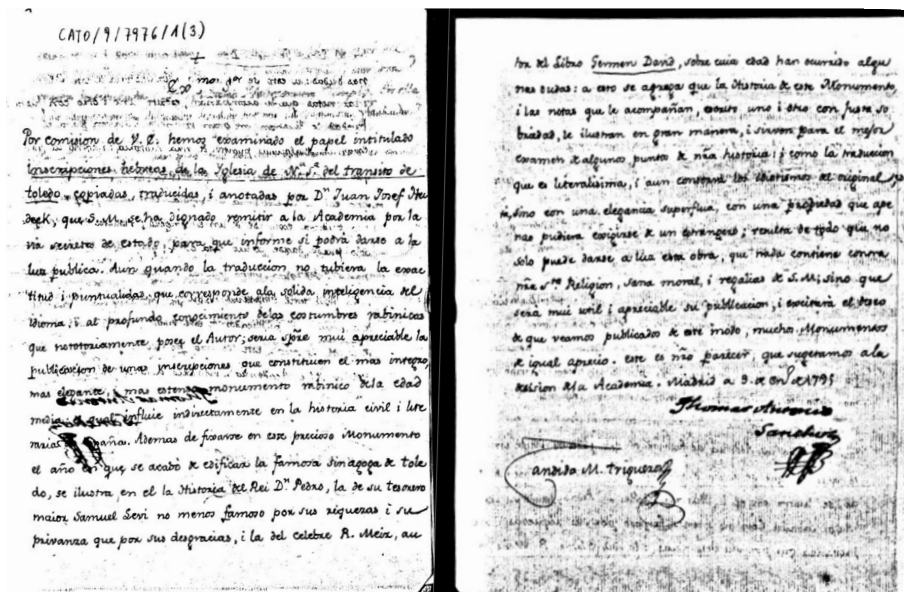 CATO/9/7976/1(3)
Ex.mo Sor
Por comision de V.E. hemos examinado el papel intitulado
Inscripciones hebreas de la Iglesia de N. S. del transito de
toledo, copiadas, traducidas, i anotadas por Dn Juan Josef Hei
deck, que S.M. se ha dignado remitir a la Academia por la
via secreta de estado, para que informe si podrá darse a la
luz publica. Aun quando la traduccion no tubiera la exac
titud i puntualidad que corresponde ala solida inteligencia del
idioma, i al profundo conocimiento delas costumbres rabinicas
que notoriamente posee el Autor; seria spre mui apreciable la
publicacion de unas inscripciones que constituien el mas integro,
mas elegante, i mas estenso monumento rabinico dela edad
media; el qual influie indirectamente en la historia civil i lite
raria España. Ademas de fixarse en este precioso Monumento
el año en que se acabó de edificar la famosa sinagoga de tole
do, se ilustra en el la Historia del Rei Dn Pedro, la de su tesorero
maior Samuel Levi no menos famoso por sus riquezas i su
privanza que por sus desgracias, i la del celebre R. Meir, au
tor del Libro Sermen David, sobre cuia edad han ocurrido algu
nas dudas: a esto se agrega que la Historia de este Monumento
i las notas que le acompañan, escrito uno i otro con justa so
briedad, le ilustran en gran manera, i sirven para el mejor
examen de algunos puntos de nra historia; i como la traduccion
que es literalisima, i aun constará los idiotismos del original
sino con una elegancia superflua, con una propiedad que ape
nas pudiera exigirse de un estrangero; resulta de todo que no
solo puede darse a luz esta obra, que nada contiene contra
nra sta Religion, sana moral, i regalias de S.M; sino que
será mui util i apreciable su publicacion, i excitará el deseo
de que veamos publicados de este modo, muchos Monumentos
de igual aprecio. este es nro parecer, que sugetamos ala
decision dela Academia. Madrid a 9. de eno de 1795
Thomas Antonio
Sanchez
Candido M. Trigueros